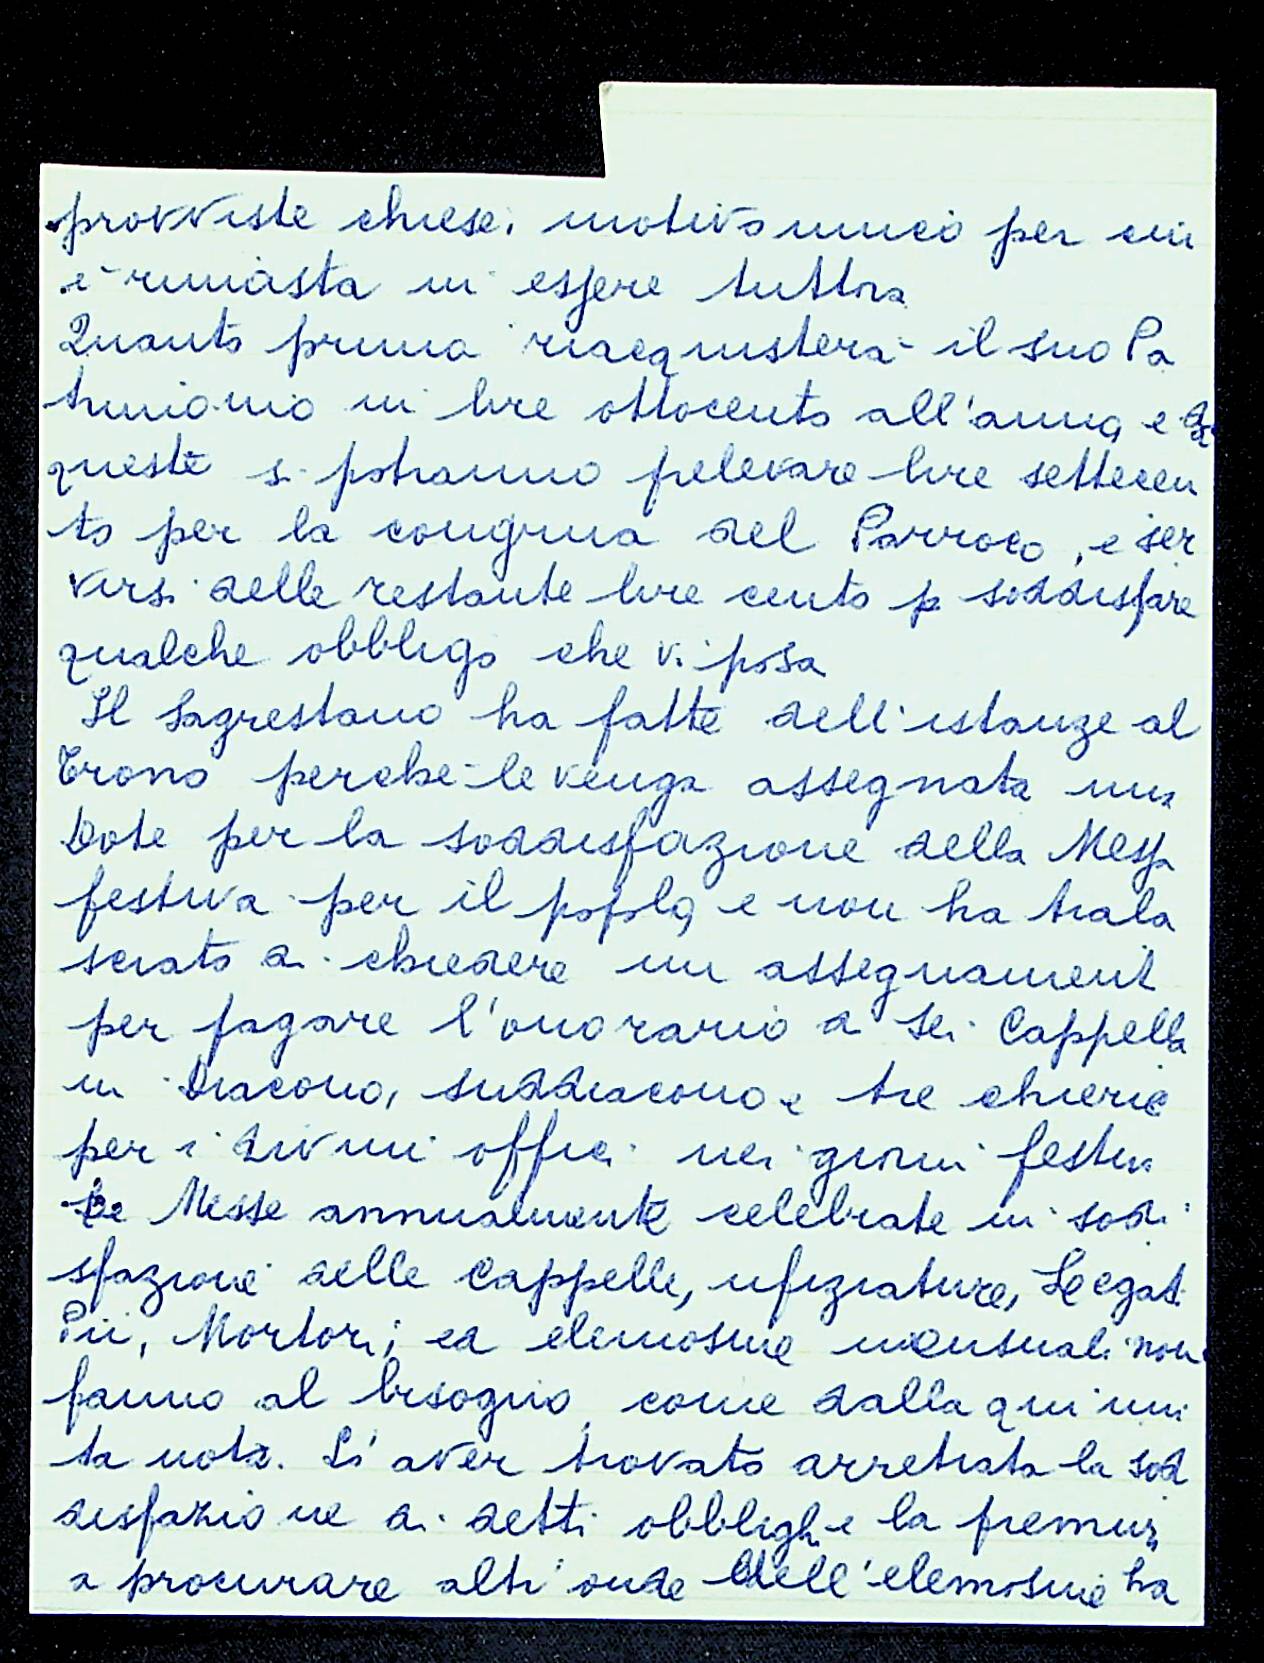 provviste chiese. motivo unico per cui
è rimasta in essere tuttora
Quanto prima riacquisterà il suo Pa
trimonio in lire ottocento all'anno, e da
queste si potranno prelevare lire settecen
to per la congrua del Parroco, e ser
virsi delle restante lire cento p soddisfare
qualche obbligo che vi posa
Il Sagrestano ha fatte dell'istanze al
Trono perche le venga assegnata una
Dote per la soddisfazione della Messa
festiva per il popolo, e non ha trala
sciato di chiedere un assegnament
per pagare l'onorario a sei Cappella
ni Diacono, suddiacono e tre chieric
per i divini offici nei giorni festivi
Le Messe annualmente celebrate in sodi
sfazione delle Cappelle, ufiziature, Legati
Pii, Mortori; ed elemosine mensuali non
fanno al bisogno, come dalla qui uni
ta nota. Li aver trovato arretrata la sod
disfazione di detti obblighi e la premura
a procurare altri onde dell'elemosine ha